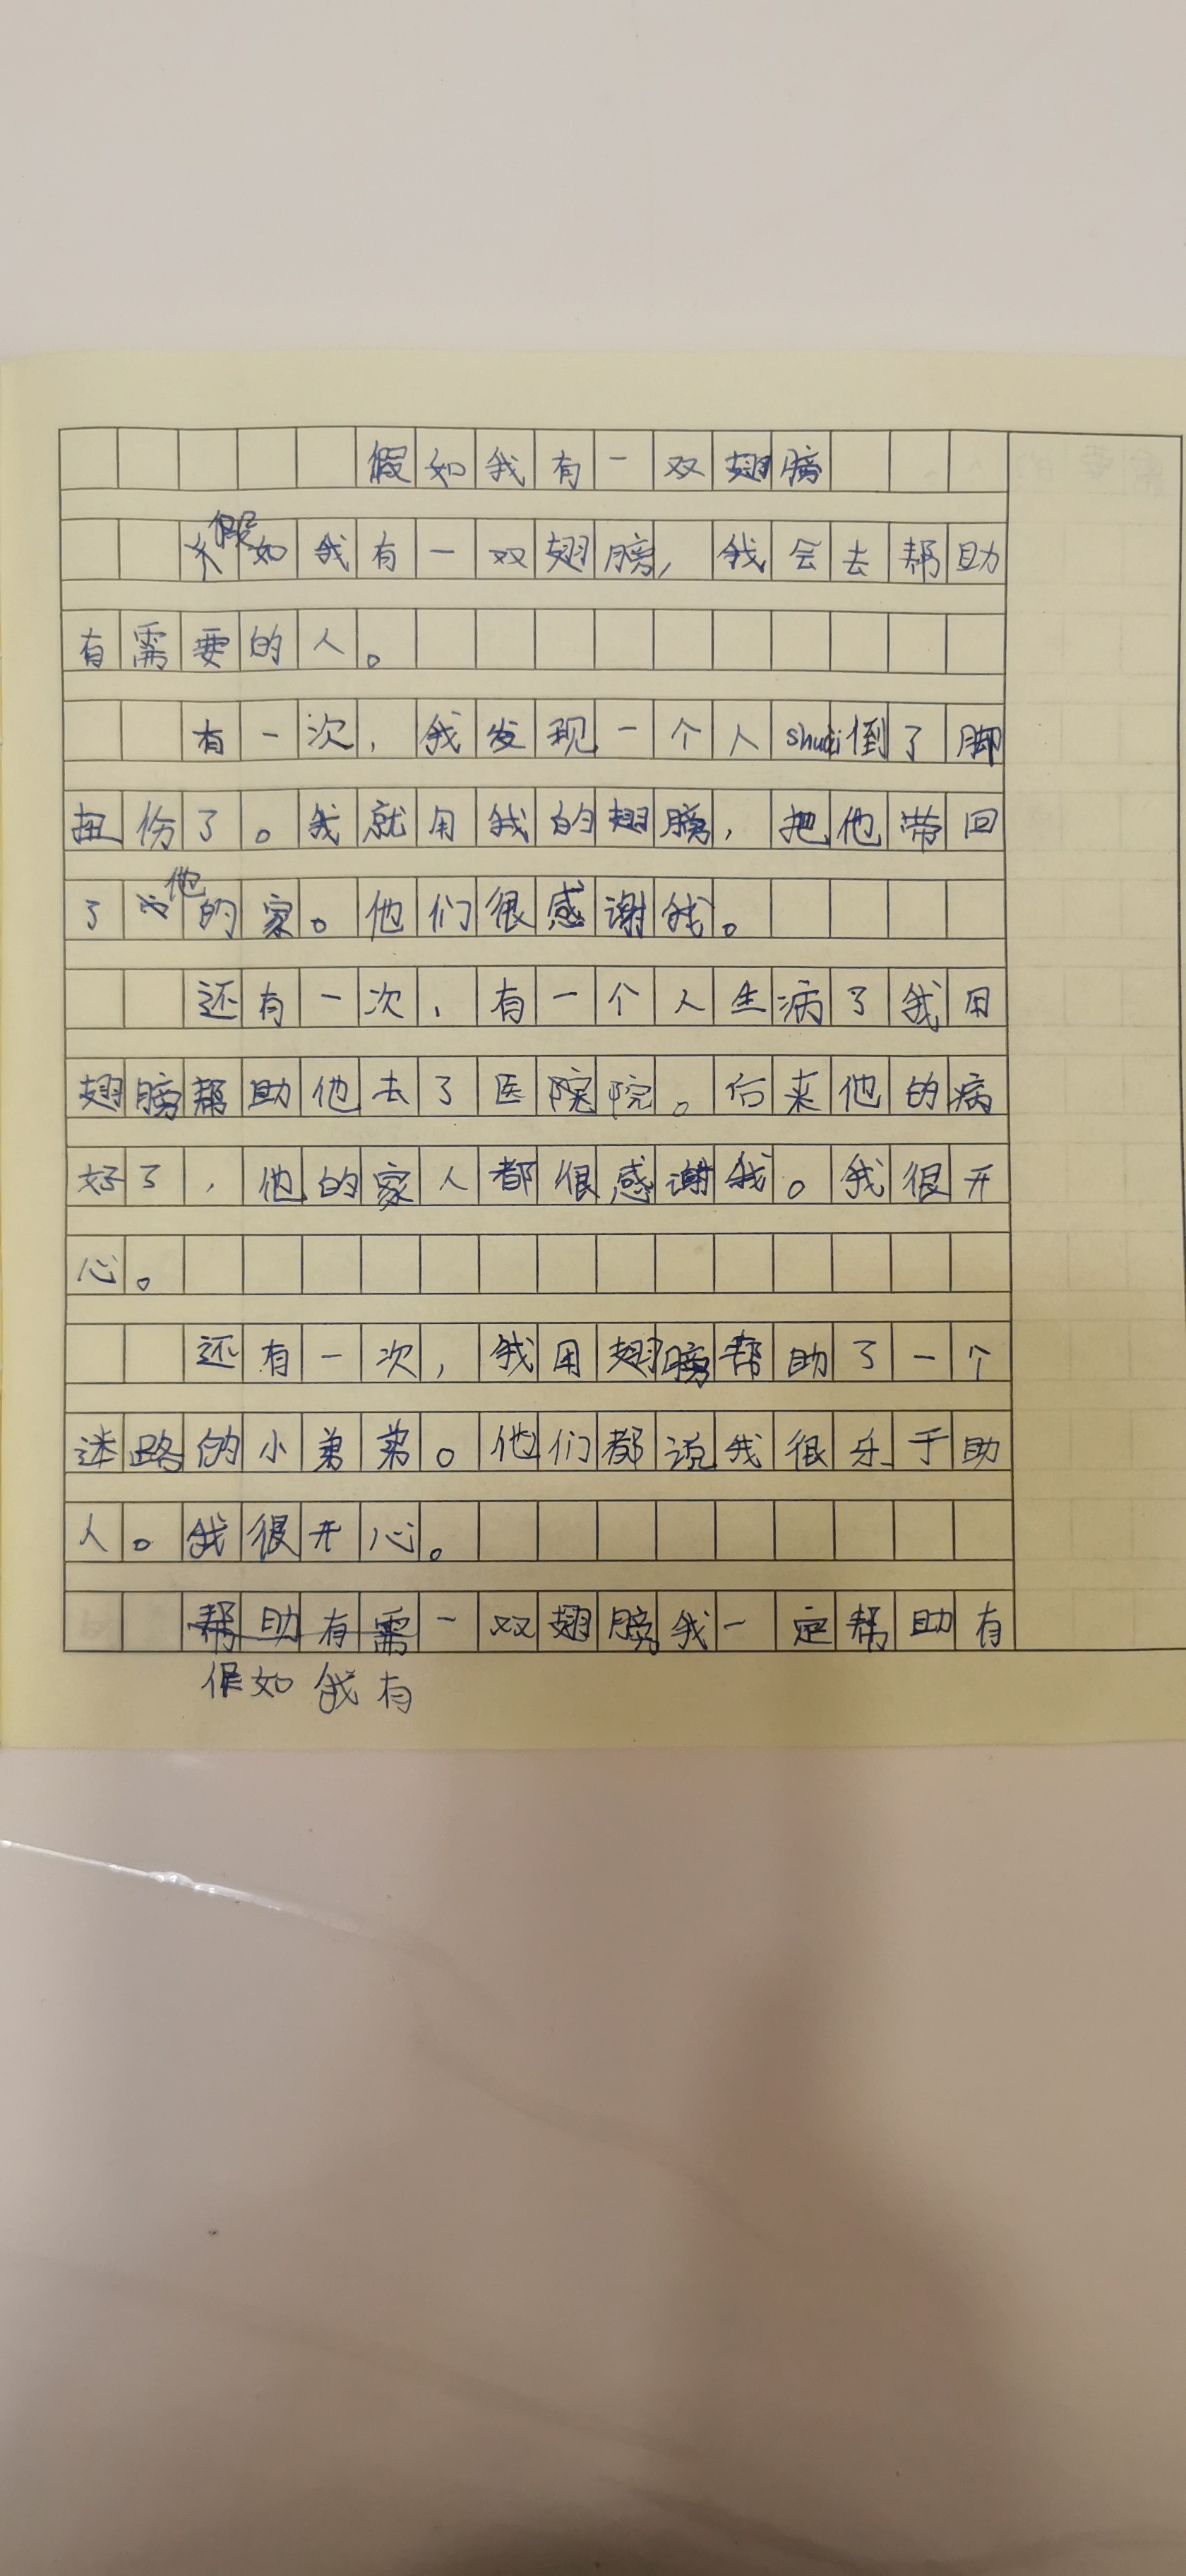 假如我有一双翅膀
假如我有一双翅膀,我会去帮助
有需要的人。
有一次,我发现一个人shuai倒了脚
扭伤了。我就用我的翅膀,把他带回
了他的家。他们很感谢我。
还有一次,有一个人生病了我用
翅膀帮助他去了医院院。后来他的病
好了,他的家人都很感谢我。我很开
心。
还有一次,我用翅膀帮助了一个
迷路的小弟弟。他们都说我很乐于助
人。我很开心。
帮助有需一双翅膀我一定帮助有
假如我有